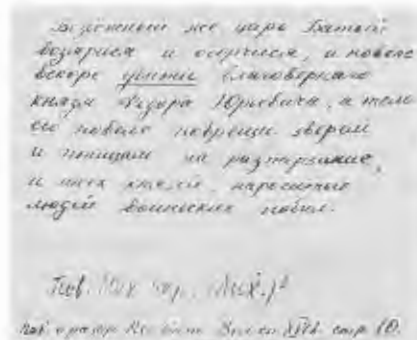 Безбожный же царь Батый
возярися и огорчися, и повеле
вскоре убити благоверного
князя Федора Юрьевича, а тело
его повеле поврещи зверем
и птицам на разтерзание,
и инех князей, нарочитых
людей воинских побил.
Пов. Ник. Зар.
Пов. о разор. в. стр. 10.